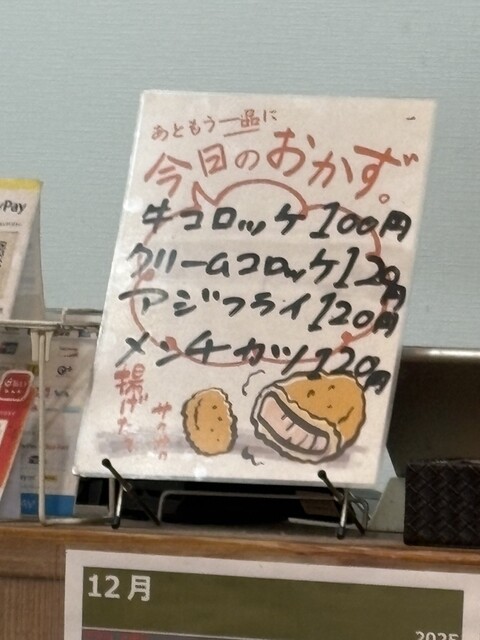 あともう一品に
今日のおかず。
牛コロッケ100円
クリームコロッケ120円
アジフライ120円
メンチカツ120円
揚げたて
サクサク
Pay
12月
2025